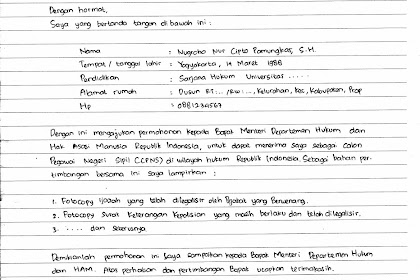 Dengan hormat,
Saya yang bertanda tangan di bawah ini :
Nama : Nugroho Nur Cipto Pamungkas, S.H.
Tempat / tanggal lahir : Yogyakarta, 14 Maret 1988
Pendidikan : Sarjana Hukum Universitas .....
Alamat rumah : Dusun RT... /RW..., Kelurahan, Kec, Kabupaten, Prop
Hp : 0881234567
Dengan ini mengajukan permohonan kepada Bapak Menteri Departemen Hukum dan
Hak Asasi Manusia Republik Indonesia, untuk dapat menerima saya sebagai Calon
Pegawai Negeri Sipil (CPNS) di wilayah hukum Republik Indonesia. Sebagai bahan per-
timbangan bersama ini saya lampirkan :
1. Fotocopy Ijazah yang telah dilegalisir oleh Pejabat yang Berwenang.
2. Fotocopy Surat Keterangan Kepolisian yang masih berlaku dan telah dilegalisir.
3. ..... dan seterusnya.
Demikianlah permohonan ini saya sampaikan kepada Bapak Menteri Departemen Hukum
dan HAM. Atas perhatian dan pertimbangan Bapak ucapkan terimakasih.